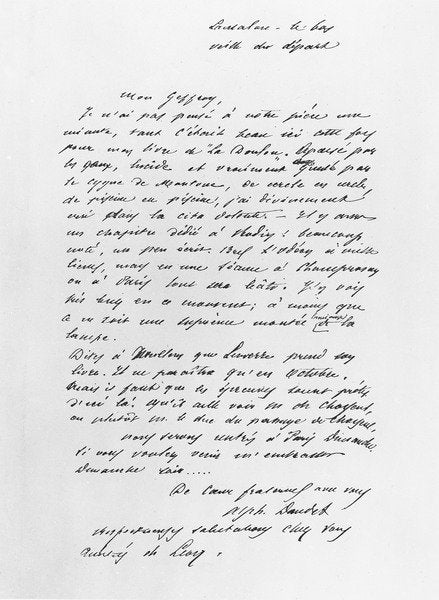 Lamalou-le bas
veille du départ
Mon Geffroy,
Je n'ai pas pensé à notre pièce une
minute, tant c'était beau ici cette fois
pour mon livre de "La Doulou". Apaisé par
les eaux, lucide et vraiment guidé par
le cygne de Mantoue, de cercle en cercle,
de piscine en piscine, j'ai divinement
vu dans la cita dolente. - Il y aura
un chapitre dédié à : beaucoup
noté, un peu écrit. Bref l'Odéon à mille
lieues, mais en une séance à Champrosay
ou à Paris tout sera bâclé. J'y vois
très bien en ce moment; à moins que
ce ne soit une suprême montée de la
lampe.
Dites à que Lemerre prend son
livre. Il ne paraîtra qu'en Octobre.
Mais il faut que les épreuves soient prêtes
d'ici là. Qu'il aille voir M. de Choiseul,
ou plutôt M. le duc du passage de Choiseul.
Nous serons rentrés à Paris Dimanche.
Si vous voulez venir m'embrasser
Dimanche soir.....
De cœur fraternel avec vous
Alph. Daudet
respectueuses salutations chez vous
de Léon.